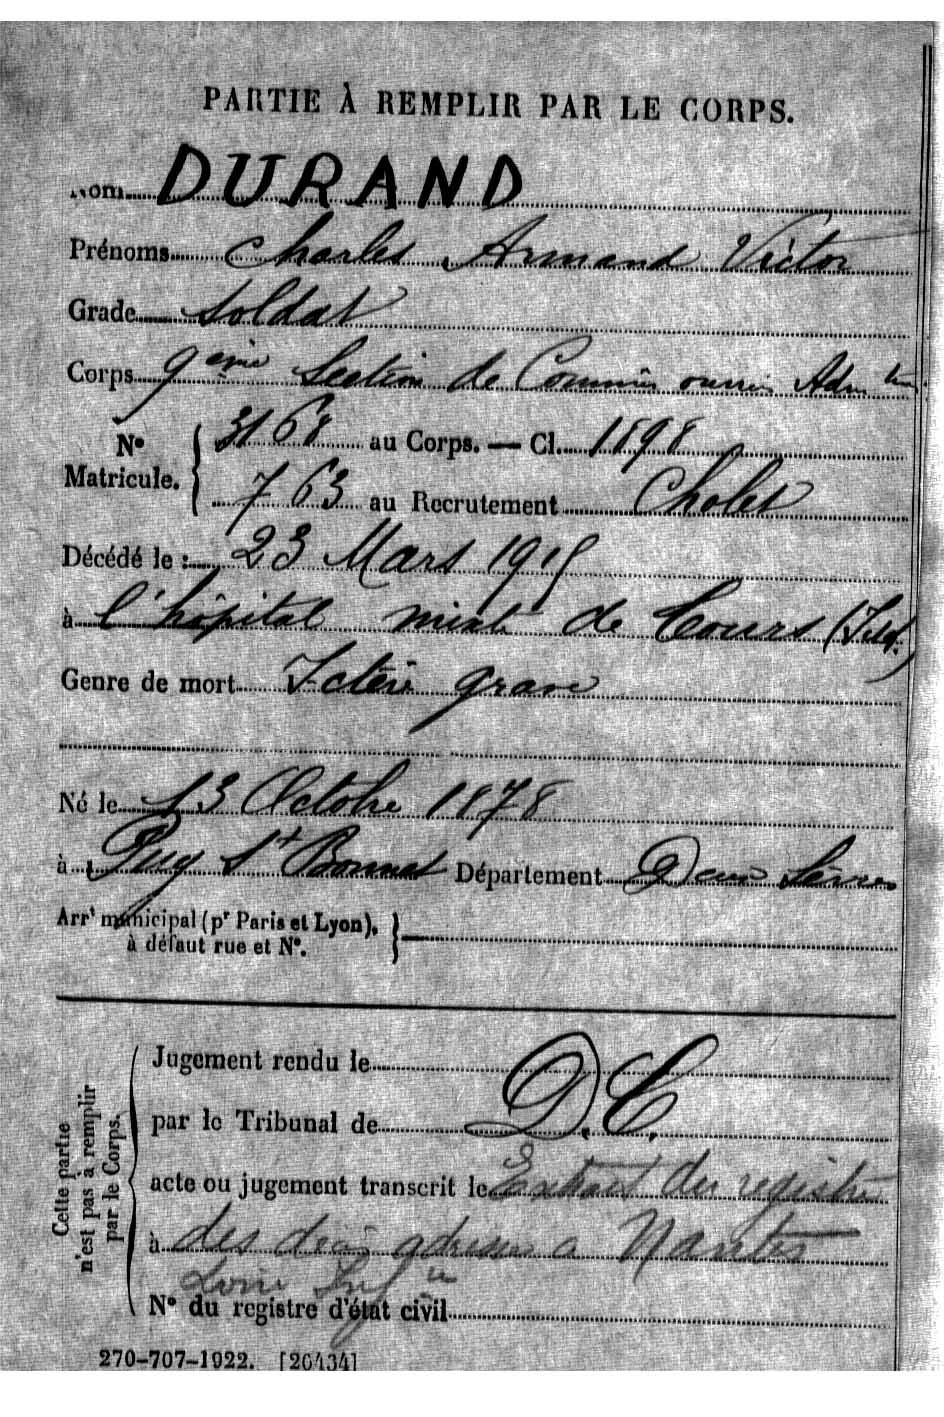 PARTIE À REMPLIR PAR LE CORPS.
Nom DURAND
Prénoms Charles Armand Victor
Grade Soldat
Corps 9ème Section de Commis ouvriers Adm
3168 au Corps. — Cl. 1898
N° Matricule.
763 au Recrutement Cholet
Décédé le : 23 Mars 1915
à l'hôpital mixte de Tours
Genre de mort Ictère grave
Né le 13 Octobre 1878
à Puy St Bonnet Département Deux Sèvres
Arrt municipal (pr Paris et Lyon),
à défaut rue et N°.
Cette partie
n'est pas à remplir
par le Corps.
Jugement rendu le
par le Tribunal de D.C.
acte ou jugement transcrit le Extrait du registre
à des décès adressé a Nantes
Loire Infre
N° du registre d'état civil
270-707-1922. [26434]